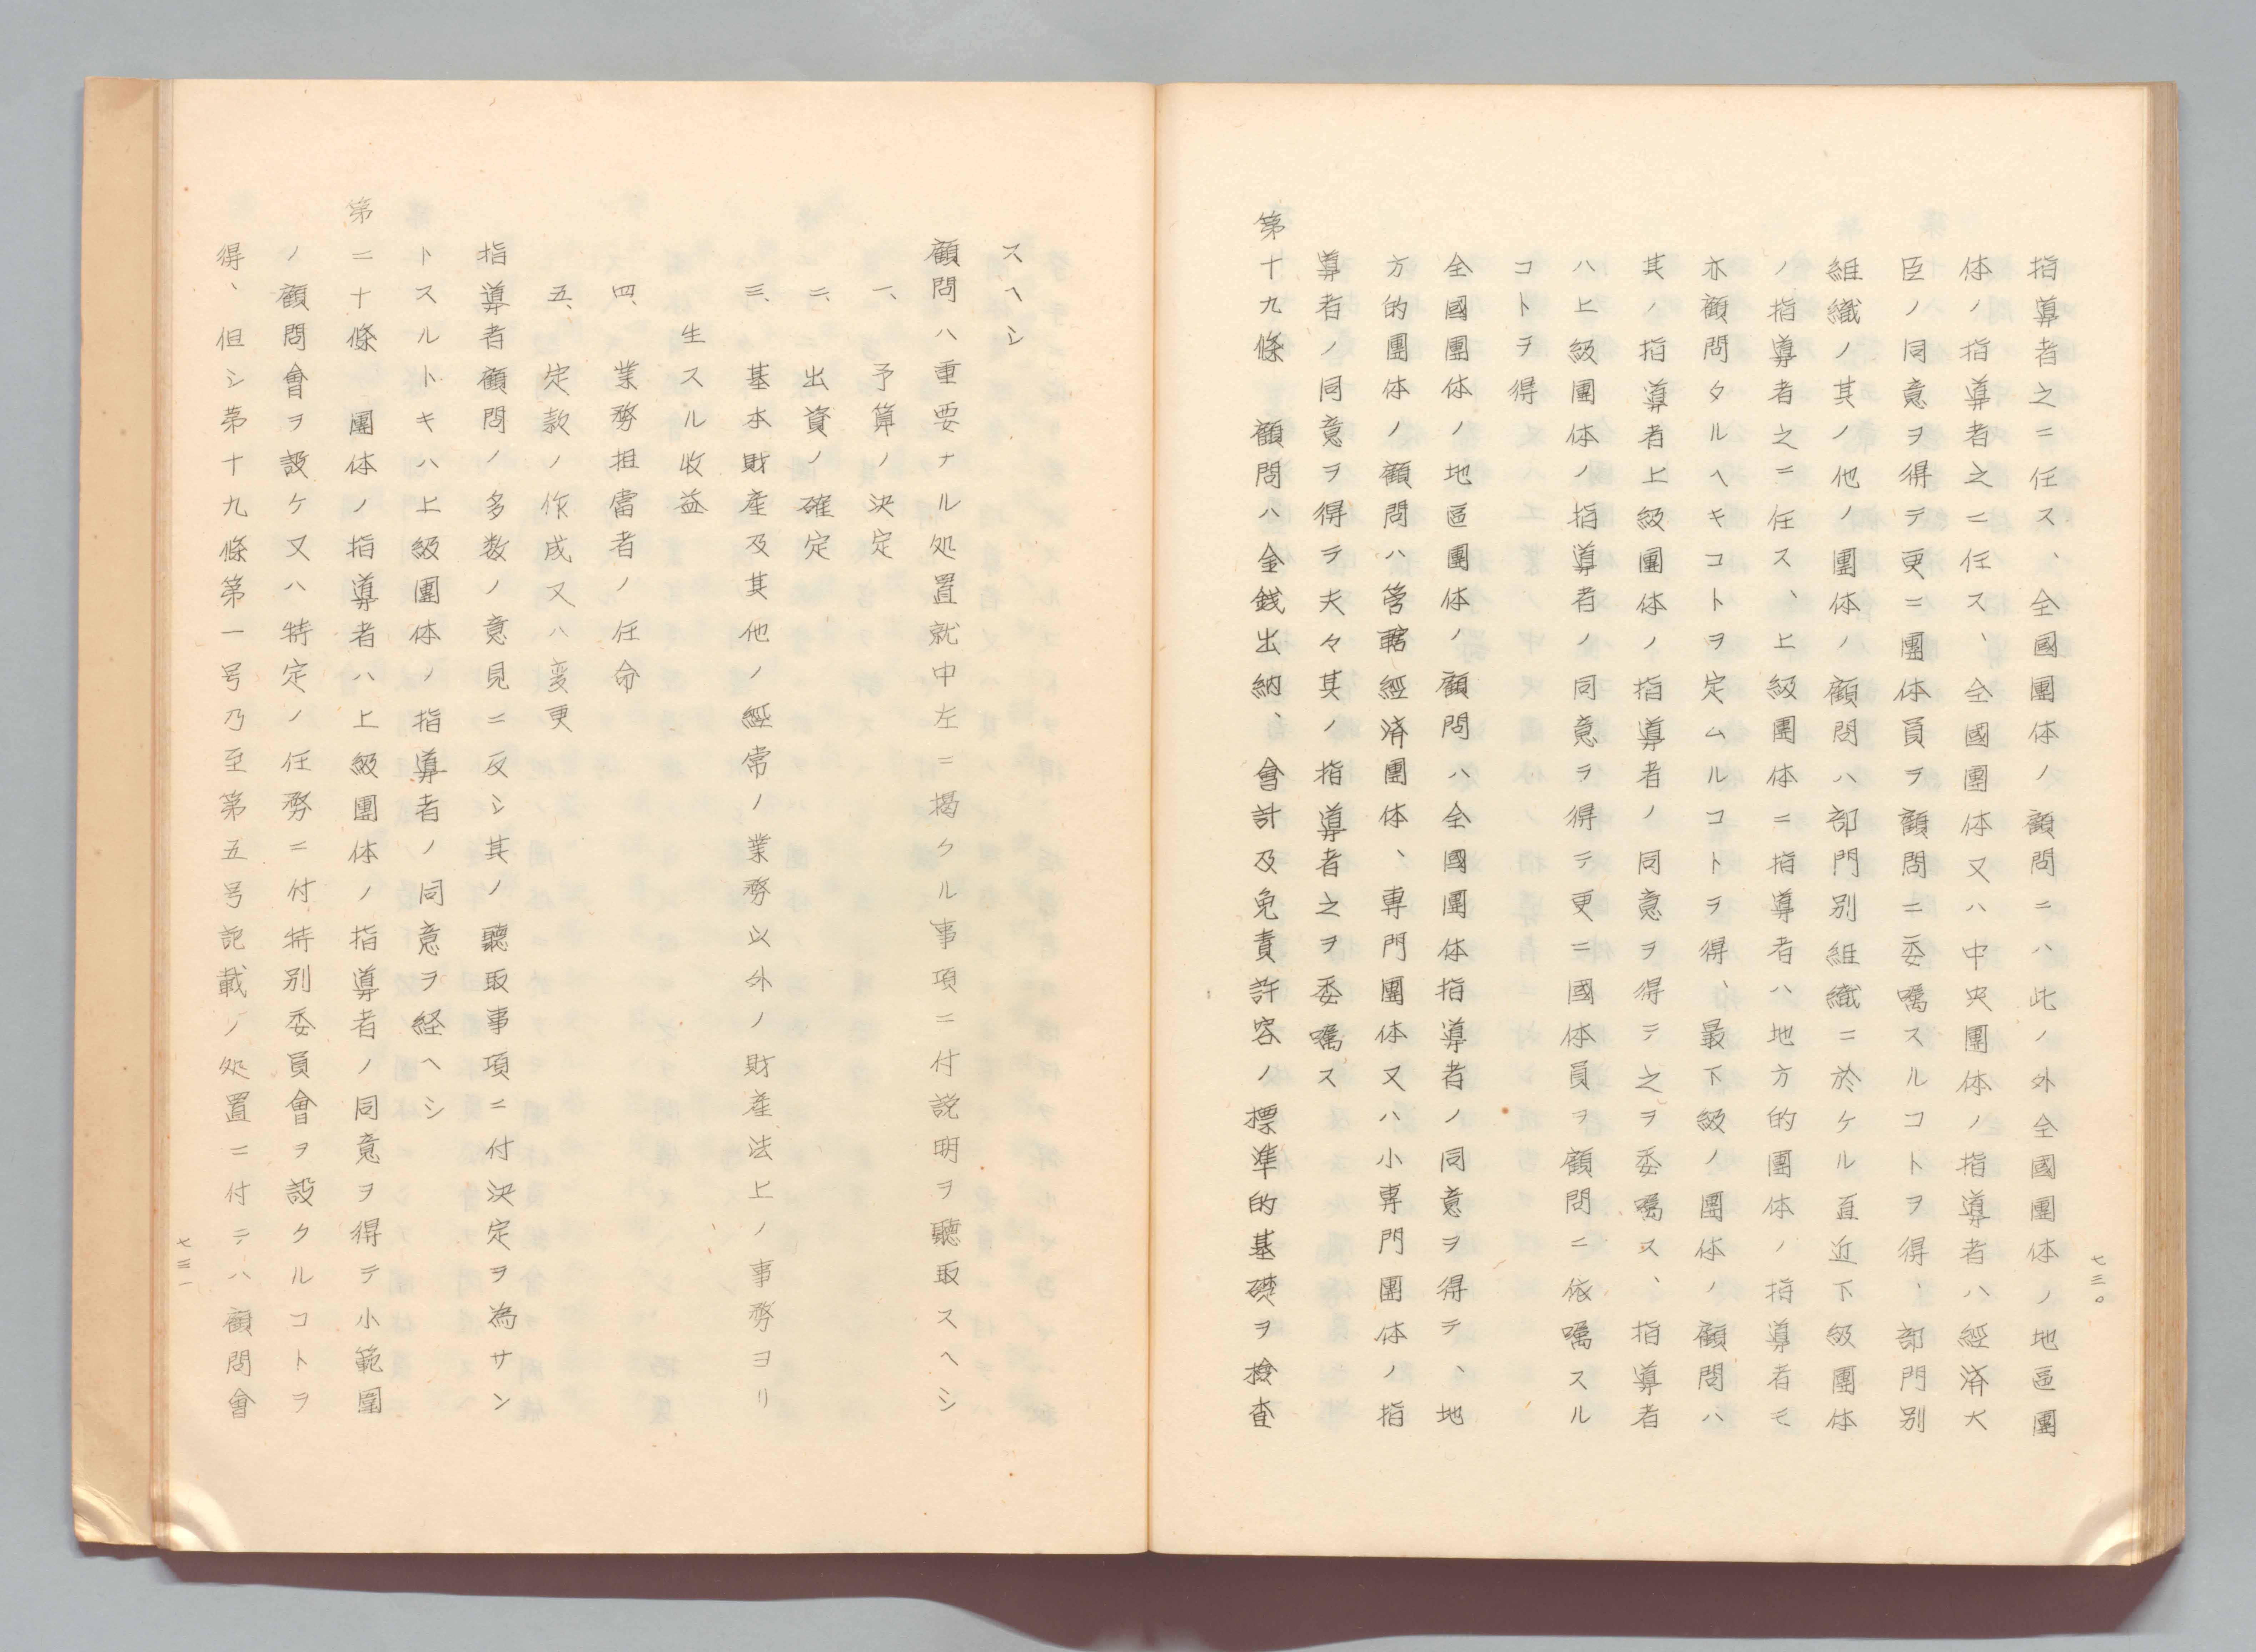 七三〇
指導者之ニ任ス、全國團体ノ顧問ニハ此ノ外全國團体ノ地區團
体ノ指導者之ニ任ス、全國團体又ハ中央團体ノ指導者ハ經済大
臣ノ同意ヲ得テ更ニ團体員ヲ顧問ニ委嘱スルコトヲ得、部門別
組織ノ其ノ他ノ團体ノ顧問ハ部門別組織ニ於ケル直近下級團体
ノ指導者之ニ任ス、上級團体ニ指導者ハ地方的團体ノ指導者モ
亦顧問タルヘキコトヲ定ムルコトヲ得、最下級ノ團体ノ顧問ハ
其ノ指導者上級團体ノ指導者ノ同意ヲ得テ之ヲ委嘱ス、指導者
ハ上級團体ノ指導者ノ同意ヲ得テ更ニ國体員ヲ顧問ニ依嘱スル
コトヲ得
全國團体ノ地區團体ノ顧問ハ全國團体指導者ノ同意ヲ得テ、地
方的團体ノ顧問ハ管轄經済團体、専門團体又ハ小専門團体ノ指
導者ノ同意ヲ得テ夫々其ノ指導者之ヲ委嘱ス
第十九條　顧問ハ金銭出納、會計及免責許容ノ標準的基礎ヲ撿査
スヘシ
顧問ハ重要ナル処置就中左ニ掲クル事項ニ付説明ヲ聽取スヘシ
一、予算ノ決定
二、出資ノ確定
三、基本財産及其他ノ經常ノ業務以外ノ財産法上ノ事務ヨリ
生スル收益
四、業務担當者ノ任命
五、定款ノ作成又ハ変更
指導者顧問ノ多数ノ意見ニ反シ其ノ聽取事項ニ付決定ヲ為サン
トスルトキハ上級團体ノ指導者ノ同意ヲ経ヘシ
第二十條　團体ノ指導者ハ上級團体ノ指導者ノ同意ヲ得テ小範圍
ノ顧問會ヲ設ケ又ハ特定ノ任務ニ付特別委員會ヲ設クルコトヲ
得、但シ第十九條第一号乃至第五号記載ノ処置ニ付テハ顧問會
七三一